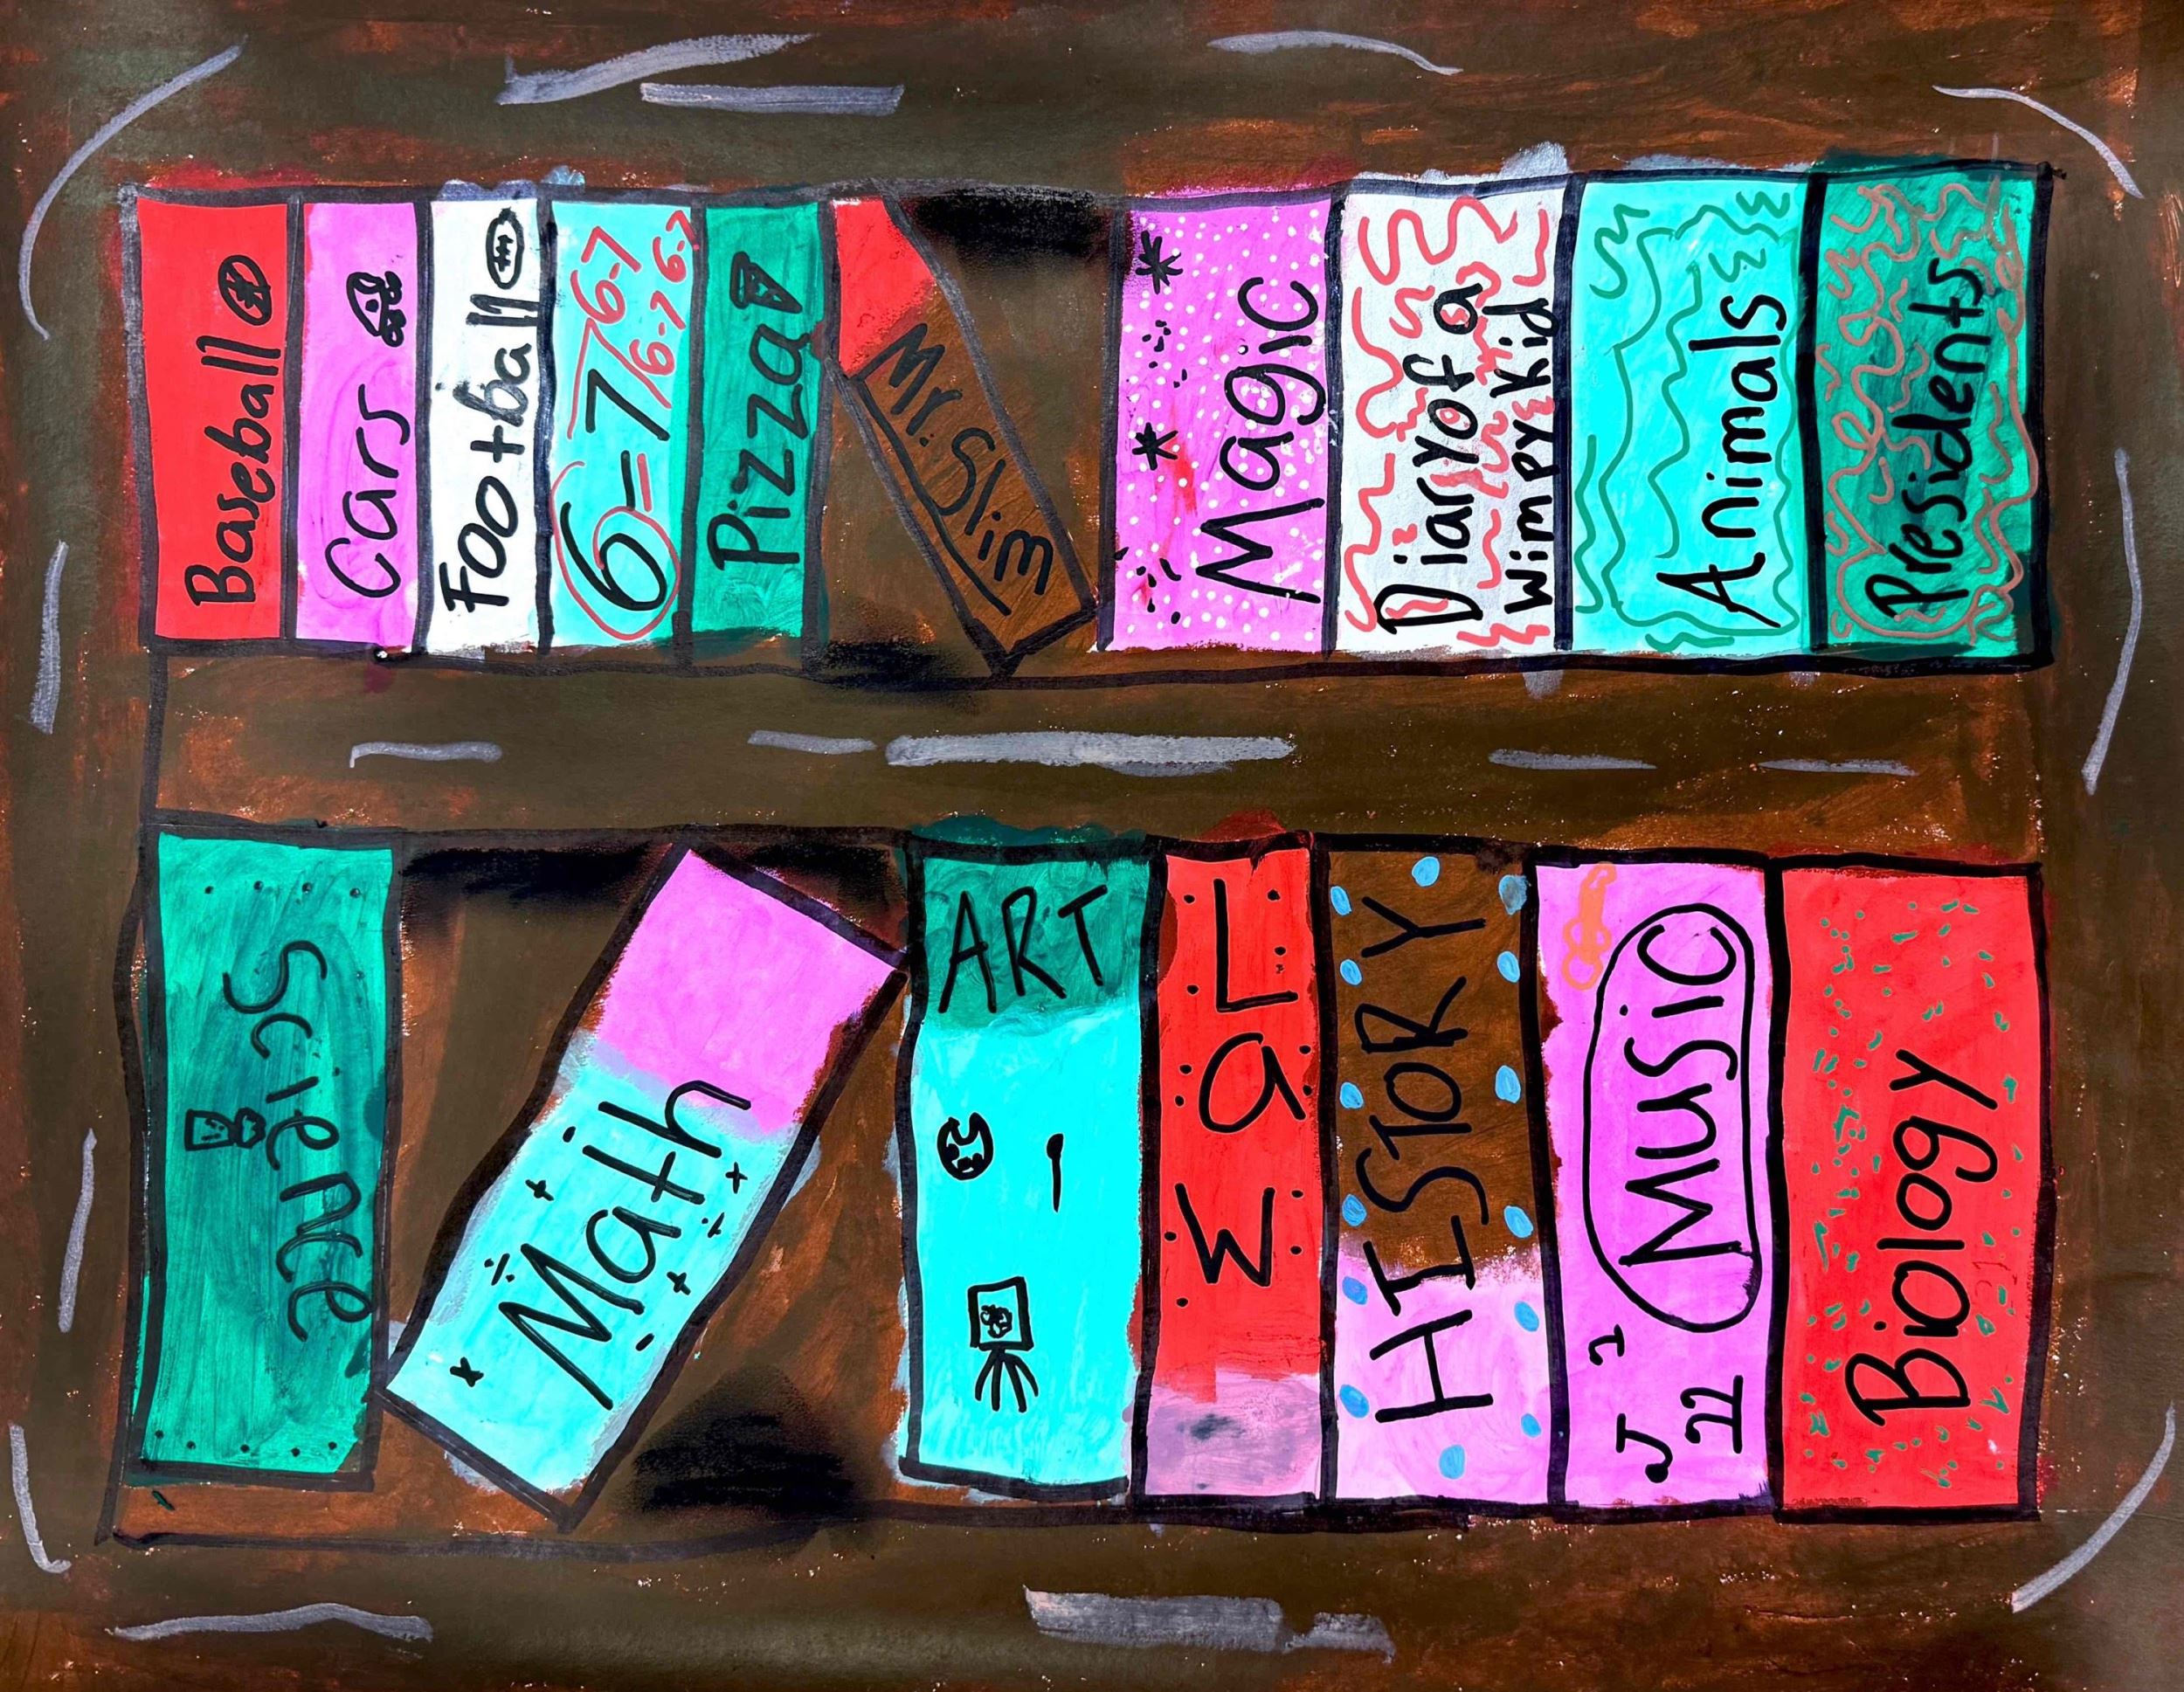 Baseball
Cars
Football
6-7
6-7
6-7
6-7
Pizza
Mr. Slim
Magic
Diary of a
Wimpy Kid
Animals
Presidents
Science
Math
ART
Law
HISTORY
Music
Biology